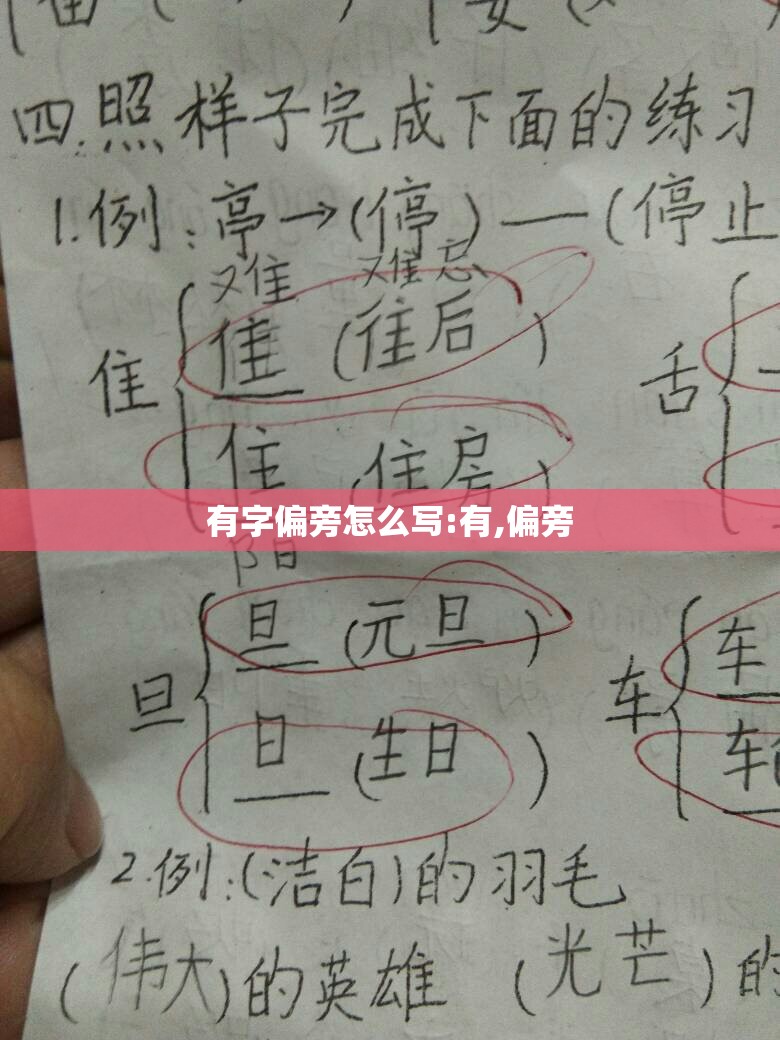 四.照样子完成下面的练习
1.例:亭→(停)—(停止
难 难忘
隹 (往后)
隹 舌
住 (住房)
有字偏旁怎么写:有,偏旁
阳
旦 (元旦)
旦 车 车
日 (生日) 车
2.例:(洁白)的羽毛
(伟大)的英雄 (光芒)的